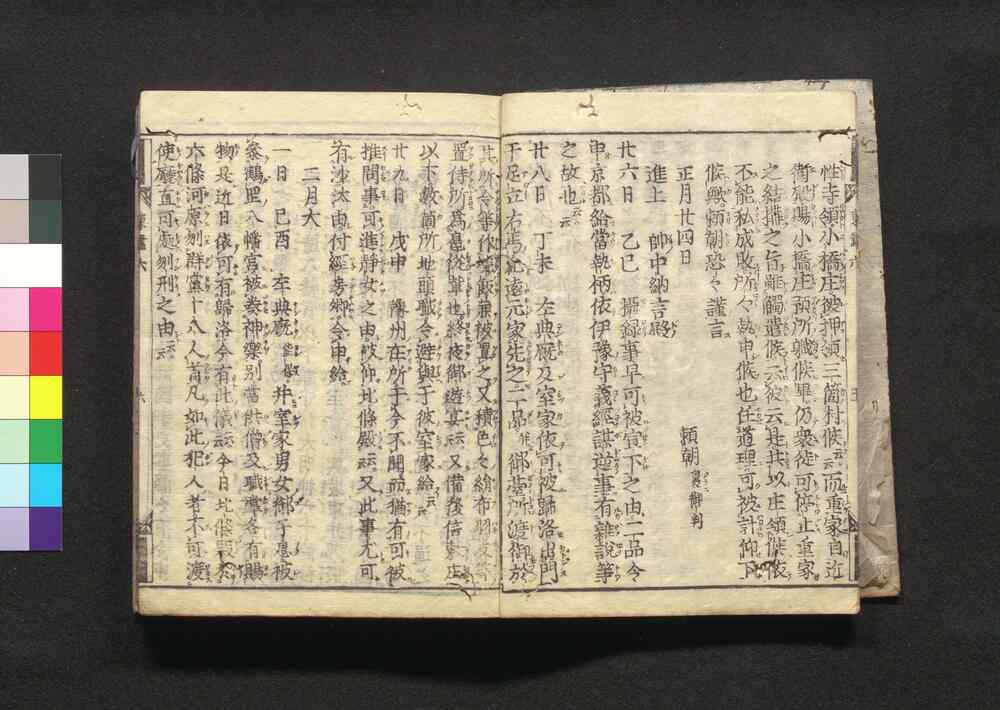 性寺領小橋庄被押領三箇村候云云而重家自近
衛殿賜小橋庄預所職候畢仍衆徒可停止重家
之結搆之旨雖觸遣候云云彼云是共以庄領候依
不能私成敗所々執申候也任道理可被計仰下
候歟頼朝恐々謹言
正月廿四日 頼朝裏御判
進上 帥中納言殿
廿六日 乙巳 攝録事早可被宣下之由二品令
申京都給當執柄依伊豫守義經謀逆事有雜說等
之故也云云
廿八日 丁未 左典厩及室家依可被歸洛出門
于足立右馬允遠元家先之二品御臺所渡御於
其所令
置待所為
以下數箇所地頭職令避與于彼室家給云云
廿九日 戊申 豫州在所于今不聞而猶有可被
推問事可進靜女之由被仰北條殿云云又此事尤可
有沙汰由付經房卿令申給
二月大
一日 己酉 左典厩 并室家男女御子息被
參鶴罡八幡宮被奏神樂別當供僧及職掌各有賜
物是近日依可有歸洛今有此儀云云今日北條殿於
六條河原刎群黨十八人首凡如此犯人者不可渡
使廳直可處刎刑之由云云